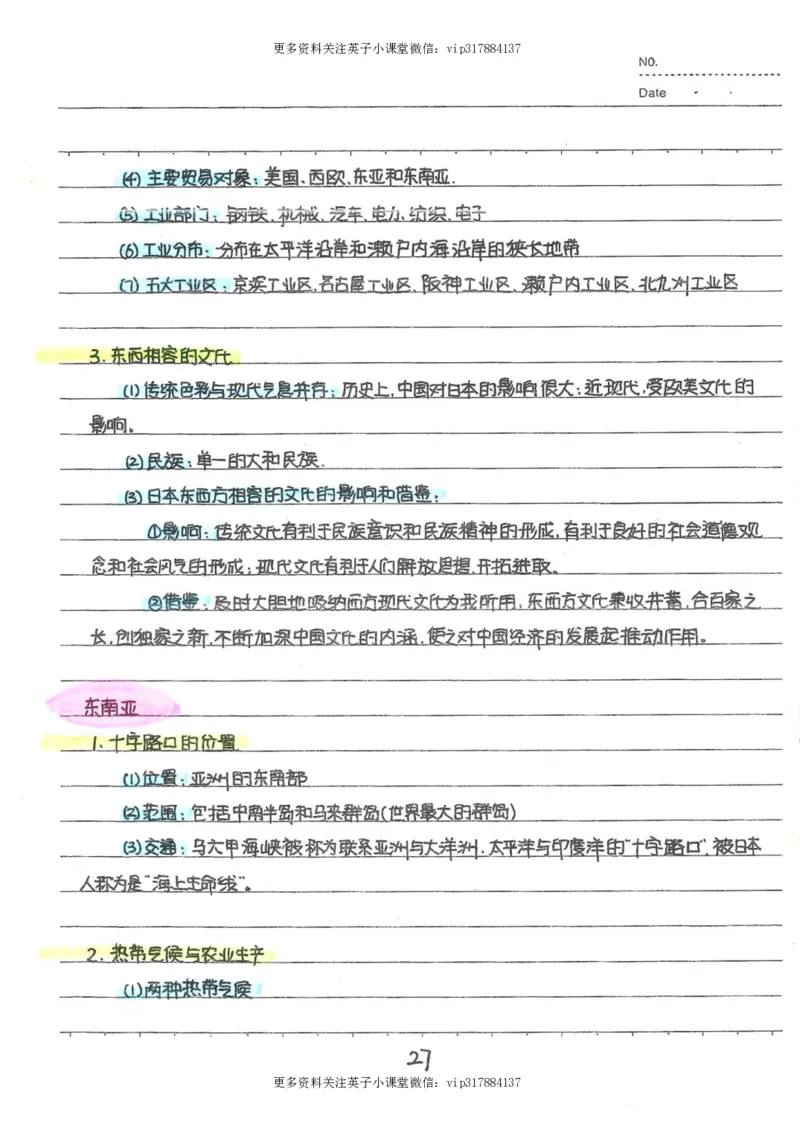 更多资料关注英子小课堂微信：vip317884137
NO.
Date
(4) 主要贸易对象：美国、西欧、东亚和东南亚.
(5) 工业部门：钢铁、机械、汽车、电力、纺织、电子
(6) 工业分布：分布在太平洋沿岸和濑户内海沿岸的狭长地带
(7) 五大工业区：京滨工业区、名古屋工业区、阪神工业区、濑户内工业区、北九州工业区
3. 东西相容的文化
(1) 传统色彩与现代气息并存：历史上，中国对日本的影响很大；近现代，受欧美文化的
影响。
(2) 民族：单一的大和民族.
(3) 日本东西方相容的文化的影响和借鉴：
①影响：传统文化有利于民族意识和民族精神的形成，有利于良好的社会道德观
念和社会风气的形成；现代文化有利于人们解放思想、开拓进取。
②借鉴：及时大胆地吸纳西方现代文化为我所用，东西方文化兼收并蓄，合百家之
长，创独家之新，不断加深中国文化的内涵，使之对中国经济的发展起推动作用。
东南亚
1. 十字路口的位置
(1) 位置：亚洲的东南部
(2) 范围：包括中南半岛和马来群岛(世界最大的群岛)
(3) 交通：马六甲海峡被称为联系亚洲与大洋洲、太平洋与印度洋的"十字路口"，被日本
人称为是"海上生命线"。
2. 热带气候与农业生产
(1) 两种热带气候
27
更多资料关注英子小课堂微信：vip317884137